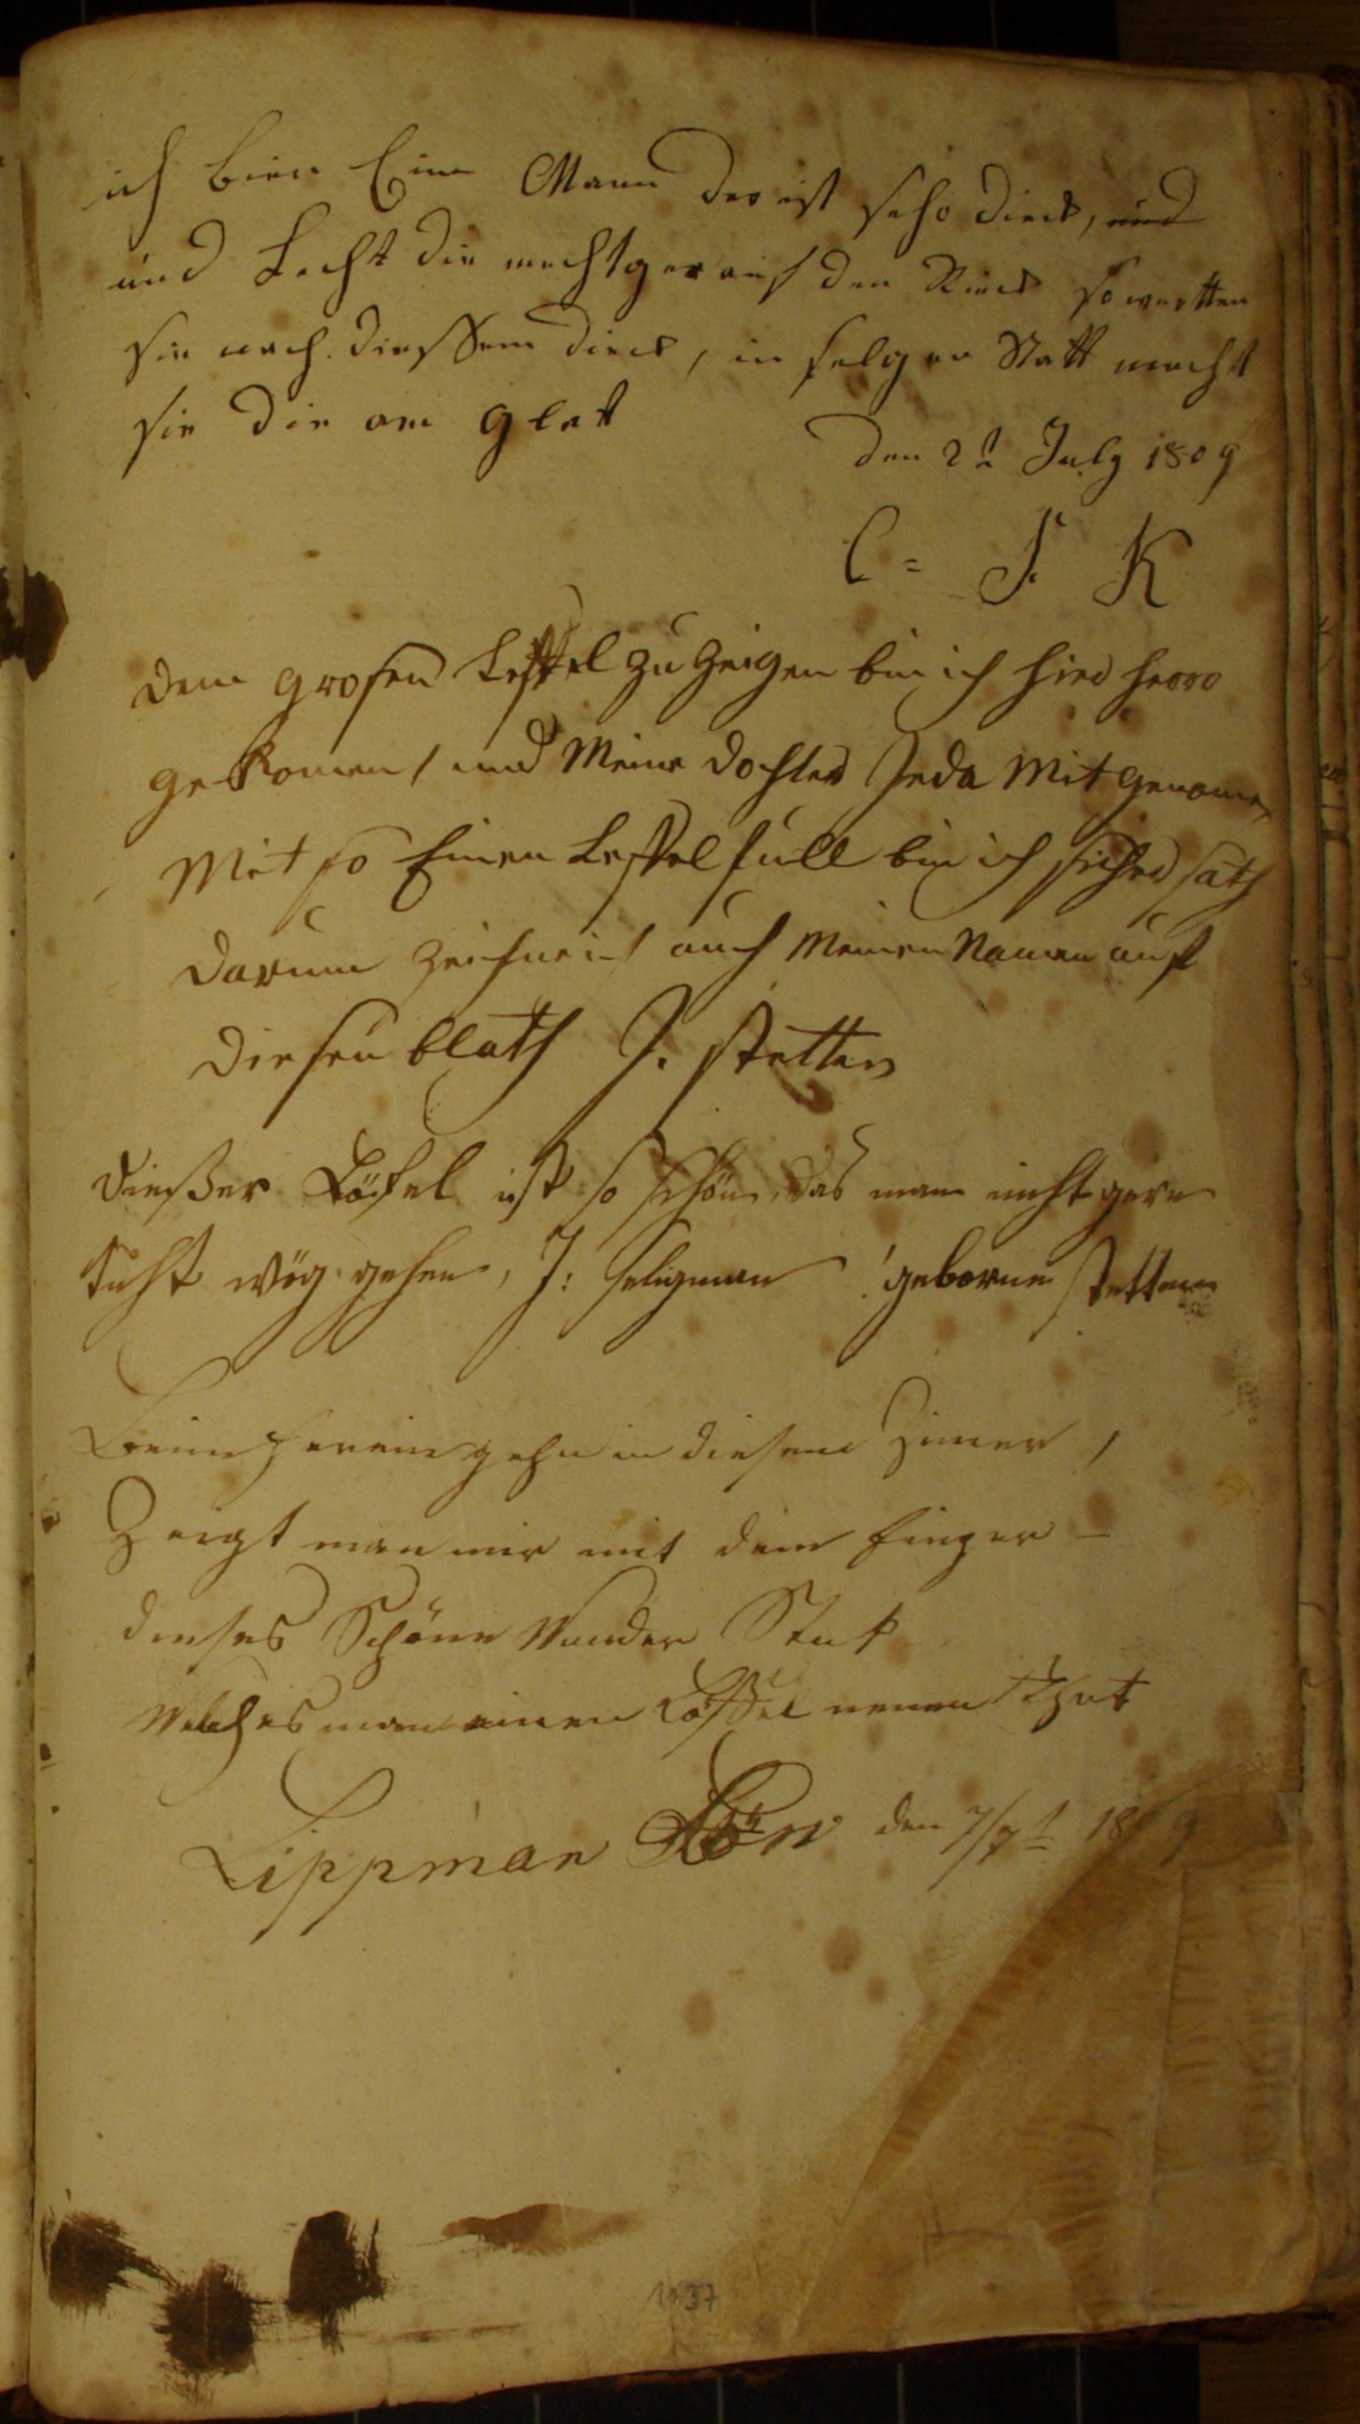 ich bien Eine Mann der ist sehr dick, und
und Lecht die mechtger auf den Rück so wertten
sie nach diessem dick, in selger Statt macht
sie die om glat
den 2t July 1809
C = S. K
dem grosen Leffel zu Zeigen bin ich hier herro
gekomen, und Meine dochter Jeda Mit genomen
Mit so Einen Leffel full bin ich sicher sath
darum zeichne ich auch Meinen Namen auf
diesen blath J. Stetten
dießer Löfel ist so schön, das man nicht gern
duht wög gehen, J: Seligman geborne Stetten
Beim herein gehn in diesem Zimer,
Zeigt man mir mit dem finger -
dieses Schöne Wunder Stuk
Welches man einen Löffel nenen Thut
Lippman Löw den 7/7t 1809
1037